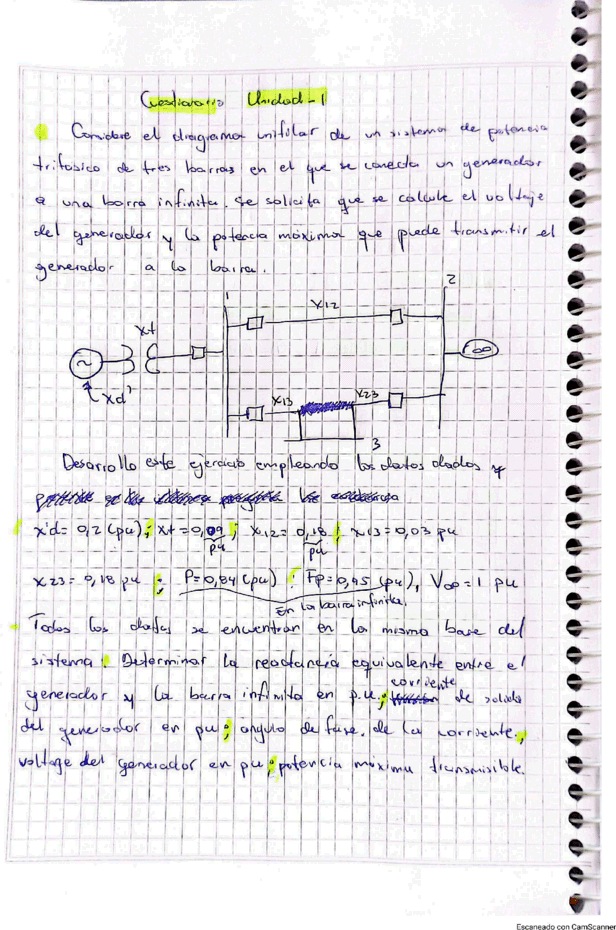 Cuestionario Unidad-1
Considere el diagrama unifilar de un sistema de potencia
trifásico de tres barras en el que se conecta un generador
a una barra infinita. Se solicita que se calcule el voltaje
del generador y la potencia máxima que puede transmitir el
generador a la barra.
1
2
X12
Xt
∞
X13
X23
Xd'
3
Desarrollo este ejercicio empleando los datos dados y
x'd= 0,2 (pu); xt=0,09 pu; x12= 0,18 pu; x13=0,03 pu
x23=0,18 pu; P=0,84 (pu); Fp=0,95 (pu), V∞=1 pu
En la barra infinita.
Todos los datos se encuentran en la misma base del
sistema. Determinar la reactancia equivalente entre el
generador y la barra infinita en p.u.; corriente de salida
del generador en pu; angulo de fase de la corriente;
voltage del generador en pu; potencia máxima transmisible.
Escaneado con CamScanner